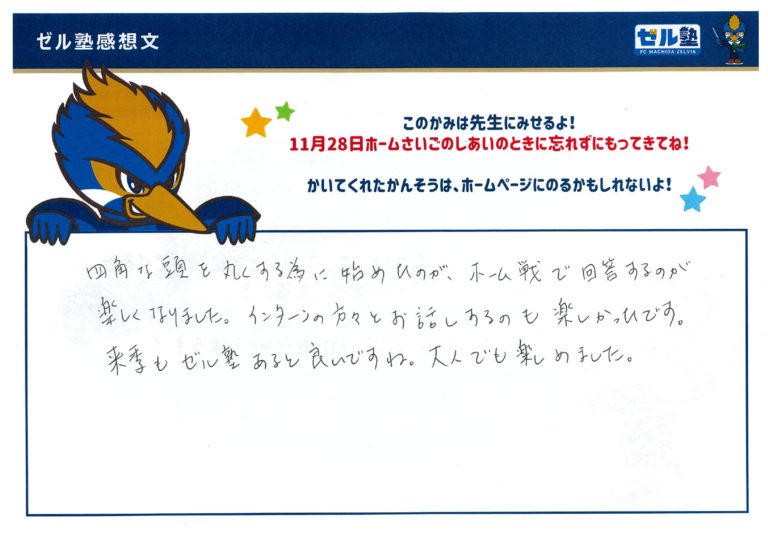 ゼル塾感想文
ゼル塾
FC MACHIDA ZELVIA
このかみは先生にみせるよ!
11月28日ホームさいごのしあいのときに忘れずにもってきてね!
かいてくれたかんそうは、ホームページにのるかもしれないよ!
四角な頭を丸くする為に始めたのが、ホーム戦で回答するのが
楽しくなりました。インターンの方々とお話しするのも楽しかったです。
来季もゼル塾あると良いですね。大人でも楽しめました。